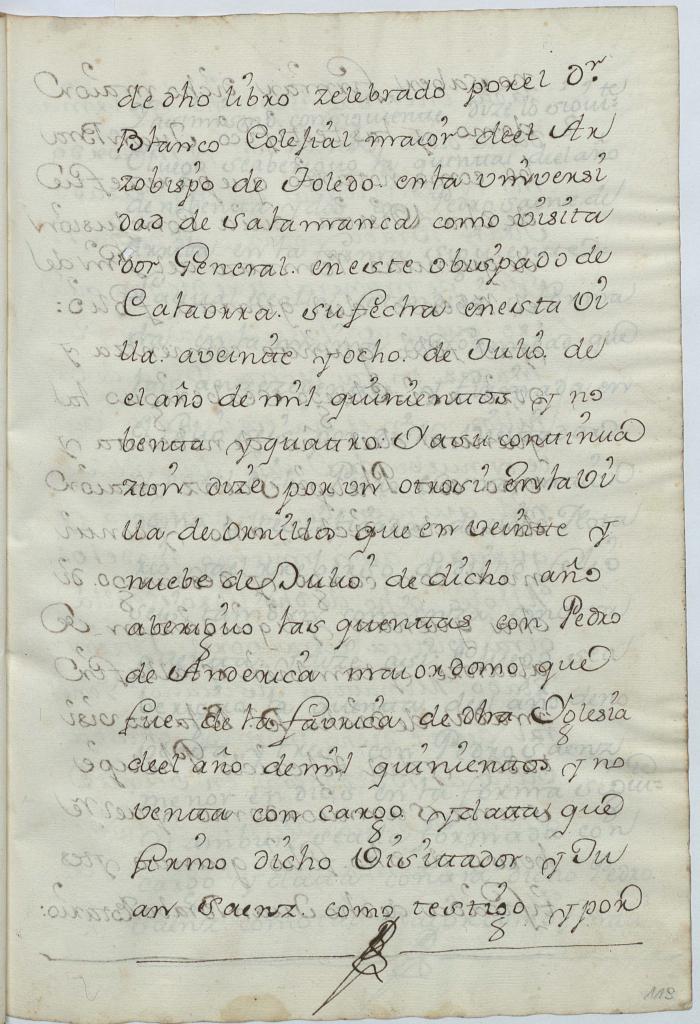 de dho libro zelebrado por el Dr
Blanco Colejial maior deel Ar
zobispo de Toledo. en la vniversi
dad de Salamanca como visita
dor General. en este obispado de
Calaorra. su fecha en esta Vi
lla. a veintte y ocho. de Julio. de
el año de mil quinienttos y no
bentta y quattro. Y a su conttinua
zion dize por vn otrosi En la Vi
lla de Ornilla que en veintte y
nuebe de Julio de dicho año
aberiguo las quenttas con Pedro
de Anderica maiordomo que
fue de la favrica de dha Yglesia
deel año de mil quinienttos y no
ventta con cargo y datta que
fermo dicho Visittador y Ju
an Saenz. como testigo y por
113